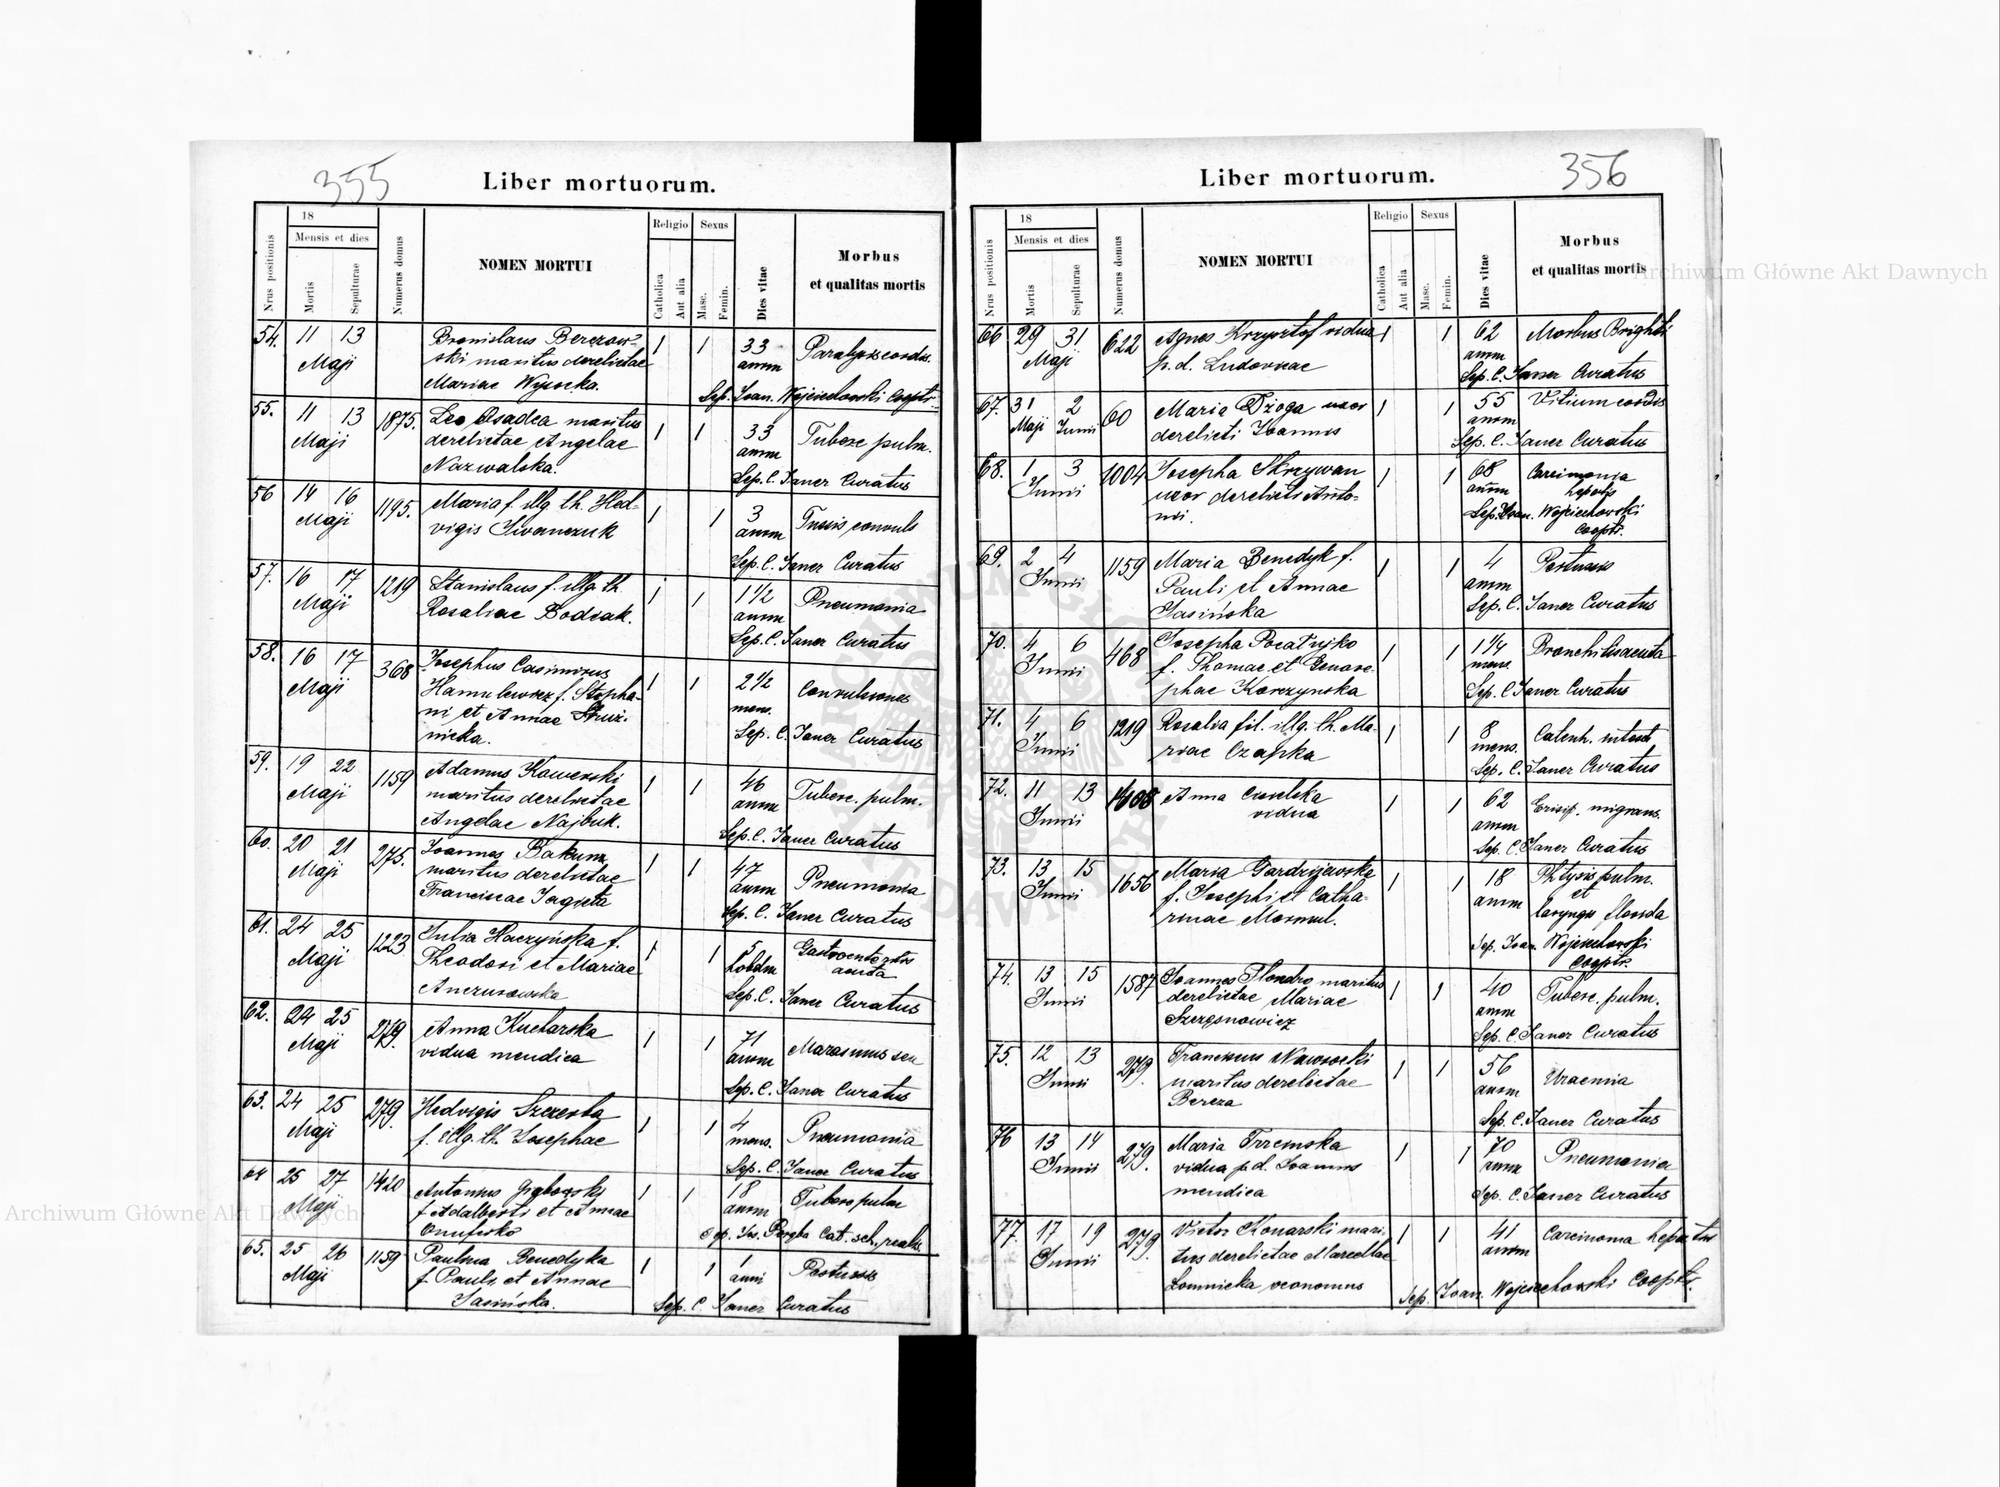 355
Liber mortuorum.
Nrus positionis
18
Mensis et dies
Mortis
Sepulturae
Numerus domus
NOMEN MORTUI
Religio
Catholica
Aut alia
Sexus
Masc.
Femin.
Dies vitae
Morbus
et qualitas mortis
54. 11 13 Bronislaus Berezow- 1 1 33 Paralysis cordis.
Maji ski maritus derelictae annor
Mariae Wysocka. Sep. Joan. Wojciechowski Cooptr.
55. 11 13 1875. Leo Osadca maritus 1 1 33 Tuberc pulm.
Maji derelictae Angelae annor
Nazwalska. Sep. C. Janer Curatus
56 14 16 1195. Maria f. illg. th. Hed- 1 1 3 Tussis convuls
Maji vigis Iwanczuk annor
Sep. C. Janer Curatus
57. 16 17 1219 Stanislaus f. illg. th. 1 1 1 1/2 Pneumonia
Maji Rosaliae Bodnak. annor
Sep. C. Janer Curatus
58. 16 17 368 Josephus Casimirus 1 1 2 1/2 Convulsiones
Maji Hamulewicz f. Stepha- mens.
ni et Annae
nicka. Sep. C. Janer Curatus
59. 19 22 1159 Adamus Kawerski 1 1 46 Tuberc. pulm.
Maji maritus derelictae annor
Angelae Najbuk. Sep. C. Janer Curatus
60. 20 21 275. Joannes Bakun 1 1 47 Pneumonia
Maji maritus derelictae annor
Franciscae Jagieta Sep. C. Janer Curatus
61. 24 25 1223 Julia Raczyńska f. 1 1 5 Gastroenteritis
Maji Theodori et Mariae acuta
Sep. C. Janer Curatus
62. 24 25 279. Anna Kucharska 1 1 71 Marasmus sen
Maji vidua mendica annor
Sep. C. Janer Curatus
63. 24 25 279. Hedvigis Szczerba 1 1 4 Pneumonia
Maji f. illg. th. Josephae mens.
Sep. C. Janer Curatus
64 25 27 1420 Antonius Grabowski 1 1 18 Tuberc pulm
Maji f. Adalberti et Annae annor
Onufrisko Sep. Jos. Pergba Cat. sch. reals.
65. 25 26 1159 Paulina Benedyka 1 1 1 Pertussis
Maji f. Pauli et Annae anni
Jasińska. Sep. C. Janer Curatus
356
Liber mortuorum.
Nrus positionis
18
Mensis et dies
Mortis
Sepulturae
Numerus domus
NOMEN MORTUI
Religio
Catholica
Aut alia
Sexus
Masc.
Femin.
Dies vitae
Morbus
et qualitas mortis
66 29 31 622 Agnes Krzysztof vidua 1 1 62 Morbus Brighti
Maji p. d. Ludovicae annor
Sep. C. Janer Curatus
67. 31 2 60 Maria Dżoga uxor 1 1 55 Vitium cordis
Maji Junii derelicti Joannis annor
Sep. C. Janer Curatus
68. 1 3 1004 Josepha Skrzywan 1 1 68 Carcinoma
Junii uxor derelicti Anto- annor hepatis
nii. Sep. Joan. Wojciechowski
Cooptr.
69. 2 4 1159 Maria Benedyk f. 1 1 4 Pertussis
Junii Pauli et Annae annor
Jasińska Sep. C. Janer Curatus
70. 4 6 468 Josepha Pocatujko 1 1 1 1/4 Bronchitis acuta
Junii f. Thomae et mens.
phae Korczynska Sep. C Janer Curatus
71. 4 6 1219 Rosalia fil. illg. th. Ma- 1 1 8 Catarrh. intest
Junii riae Czapka mens.
Sep. C. Janer Curatus
72. 11 13 1408 Anna Cuselska 1 1 62 Erisip. migrans.
Junii vidua annor
Sep. C. Janer Curatus
73. 13 15 1656 Maria Gardrijewska 1 1 18 Phtysis pulm.
Junii f. Josephi et Catha- annor et
rinae Mormul. laryngis florida
Sep. Joan. Wojciechowski
Cooptr.
74. 13 15 1587 Joannes Flondro maritus 1 1 40 Tuberc. pulm.
Junii derelictae Mariae annor
Szczęsnowicz Sep. C. Janer Curatus
75. 12 13 279. Franciscus Nawrocki 1 1 56 Uraemia
Junii maritus derelictae annor
Bereza Sep. C. Janer Curatus
76 13 14 279. Maria Trzemska 1 1 70 Pneumonia
Junii vidua p. d. Joannis annor
mendica Sep. C. Janer Curatus
77. 17 19 279. Victor Konarski mari- 1 1 41 Carcinoma hepatis
Junii tus derelictae Marcellae annor
Lomnicka oeconomus Sep. Joan. Wojciechowski Cooptr.
Archiwum Główne Akt Dawnych
Archiwum Główne Akt Dawnych